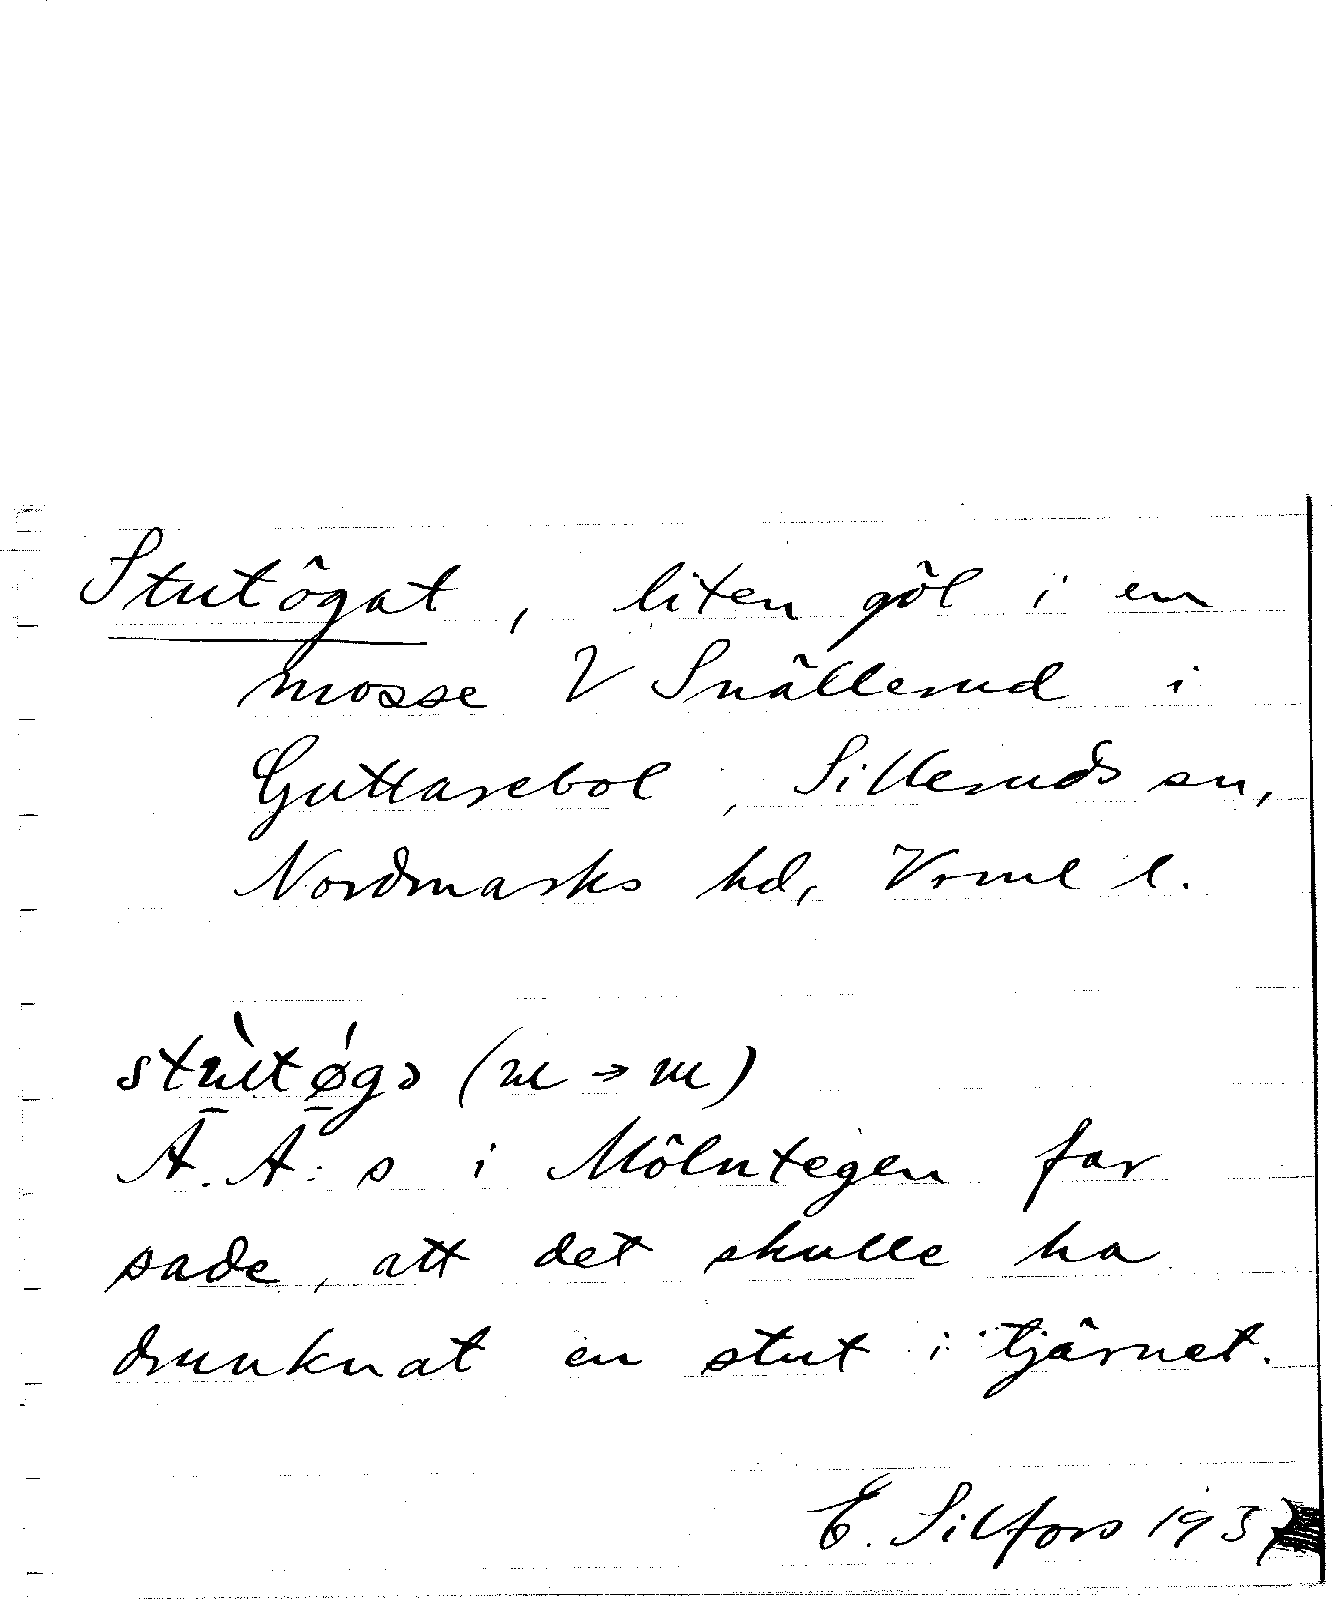 Stutögat, liten göl i en
mosse V Snällerud i
Guttarebol, Silleruds sn,
Nordmarks hd, Vrml l.
A.A:s i Mölntegen far
sade, att det skulle ha
drunknat en stut i tjärnet.
E. Silfors 1937